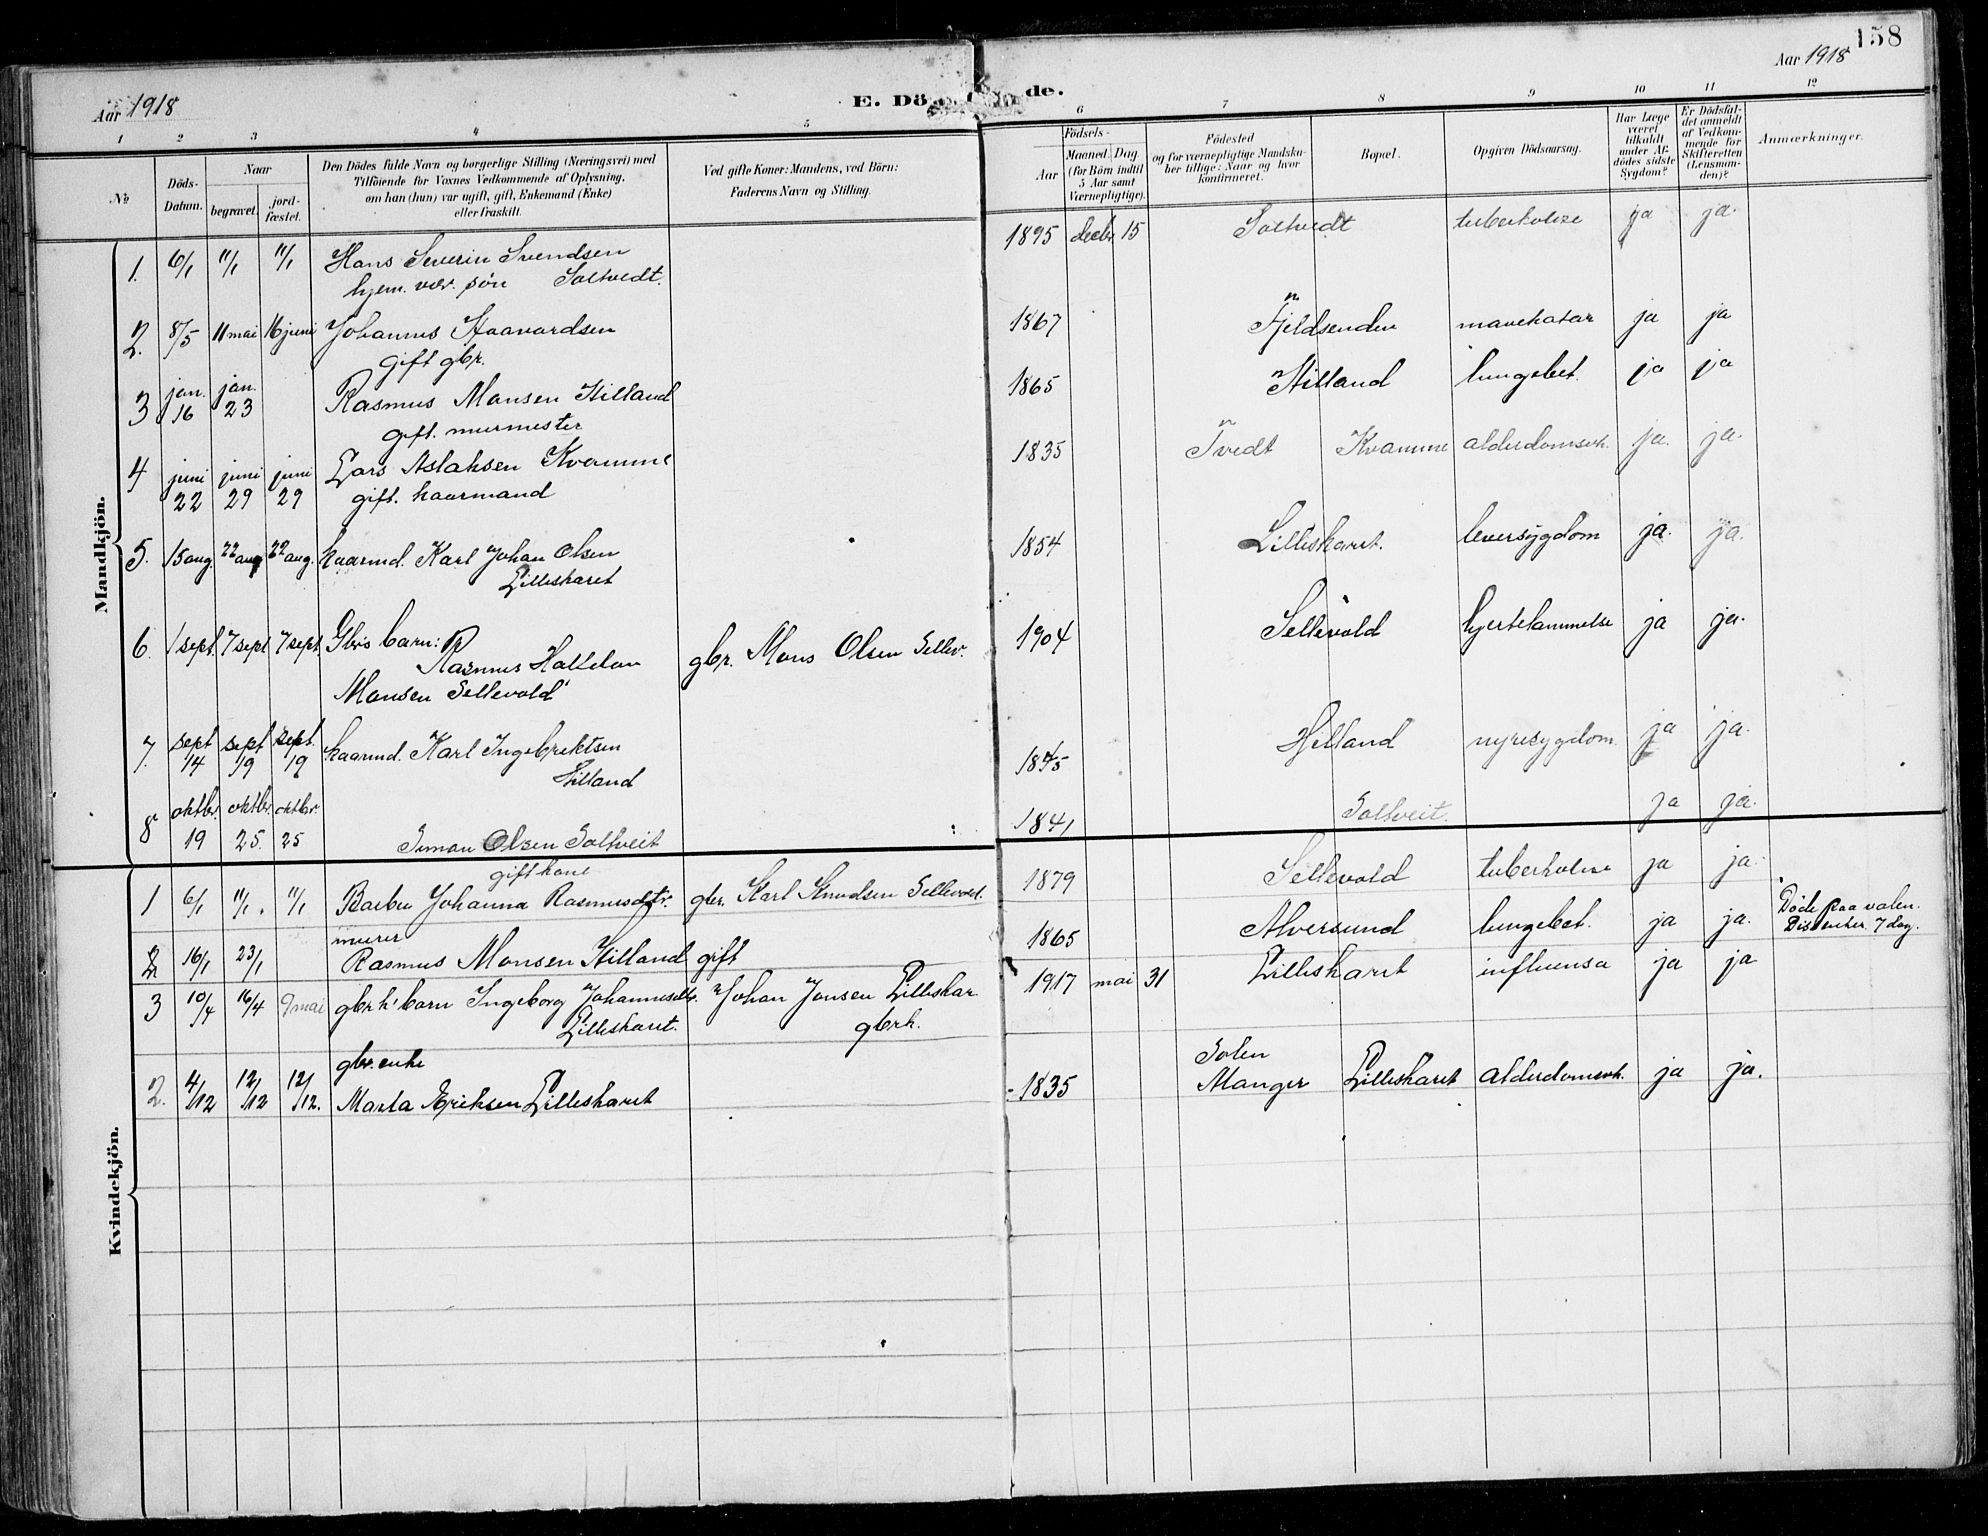 158
Aar 1918
Aar 1918
E. Dö de.
1 2 3 4 5 6 7 8 9 10 11 12
No
Döds-Datum.
Naar
begravet.
jord-fæstet.
Den Dödes fulde Navn og borgerlige Stilling (Næringsvei) med
Tilföiende for Voxnes Vedkommende af Oplysning,
om han (hun) var ugift, gift, Enkemand (Enke)
eller fraskilt.
Ved gifte Koner: Mandens, ved Börn:
Faderens Navn og Stilling.
Födsels-
Aar
Maaned. Dag.
(for Börn indtil
5 Aar samt
Værnepligtige).
Födested
og for værnepligtige Mandska-
ber tillige: Naar og hvor
konfirmeret.
Bopæl.
Opgiven Dödsaarsag.
Har Læge
været
tilkaldt
under Af-
dödes sidste
Sygdom?
Er Dödsfal-
det anmeldt
af Vedkom-
mende for
Skifteretten
(Lensman-
den)?
Anmærkninger.
Mandkjön.
1. 6/1 11/1 11/1 Hans Severin Svendsen 1895 decbr 15 Soltvedt tuberkulose ja ja.
hjem. vær. søn Soltvedt.
2. 8/5 11 mai 16 juni Johannes Haavardsen 1867 Fjeldsenden mavekatar ja ja
gift gbr.
3 jan. 16 jan. 23 Rasmus Monsen Hilland 1865 Hilland lungebet. ja ja
gift. murmester
4 juni 22 juni 29 juni 29 Lars Aslaksen Kvamme 1835 Tvedt Kvamme alderdomsvk. ja. ja.
gift. kaarmand
5. 15 aug 22 aug 22 aug. kaarmd. Karl Johan Olsen 1854 Lilleskaret. leversygdom ja. ja.
Lilleskaret
6. 1 sept. 7 sept 7 sept. Gbrs barn: gbr. Mons Olsen Sellev. 1904 Sellevold hjertelammelse ja ja.
Rasmus
Monsen Sellevold
7. sept 14 sept 19 sept. 19 kaarmd. Karl Ingebriktsen 1845 Hilland nyresygdom. ja ja.
Hilland
8 oktbr. 19 oktbr. 25. oktbr. 25 Simon Olsen Soltveit 1841 Soltveit. ja ja.
Kvindekjön.
gift kone
1 6/1 11/1 11/1 Barbu Johanna Rasmusdtr. gbr. Karl Knudsen Sellevold. 1879 Sellevold tuberkulose ja ja.
murer
2 16/1 23/1 Rasmus Monsen Hilland gift 1865 Alversund lungebet. ja ja. Døde paa valen.
7 dag.
3 10/4 16/4 9 mai gbrk' barn Ingeborg Johannesdtr. Johan Jonsen Lilleskar 1917 mai 31 Lilleskaret influensa ja ja
Lilleskaret. gbrk.
gbr. enke
2. 4/12 12/12 12/12. Marta Eriksen Lilleskaret 1835 Solen
Manger Lilleskaret alderdomsvk. ja ja.